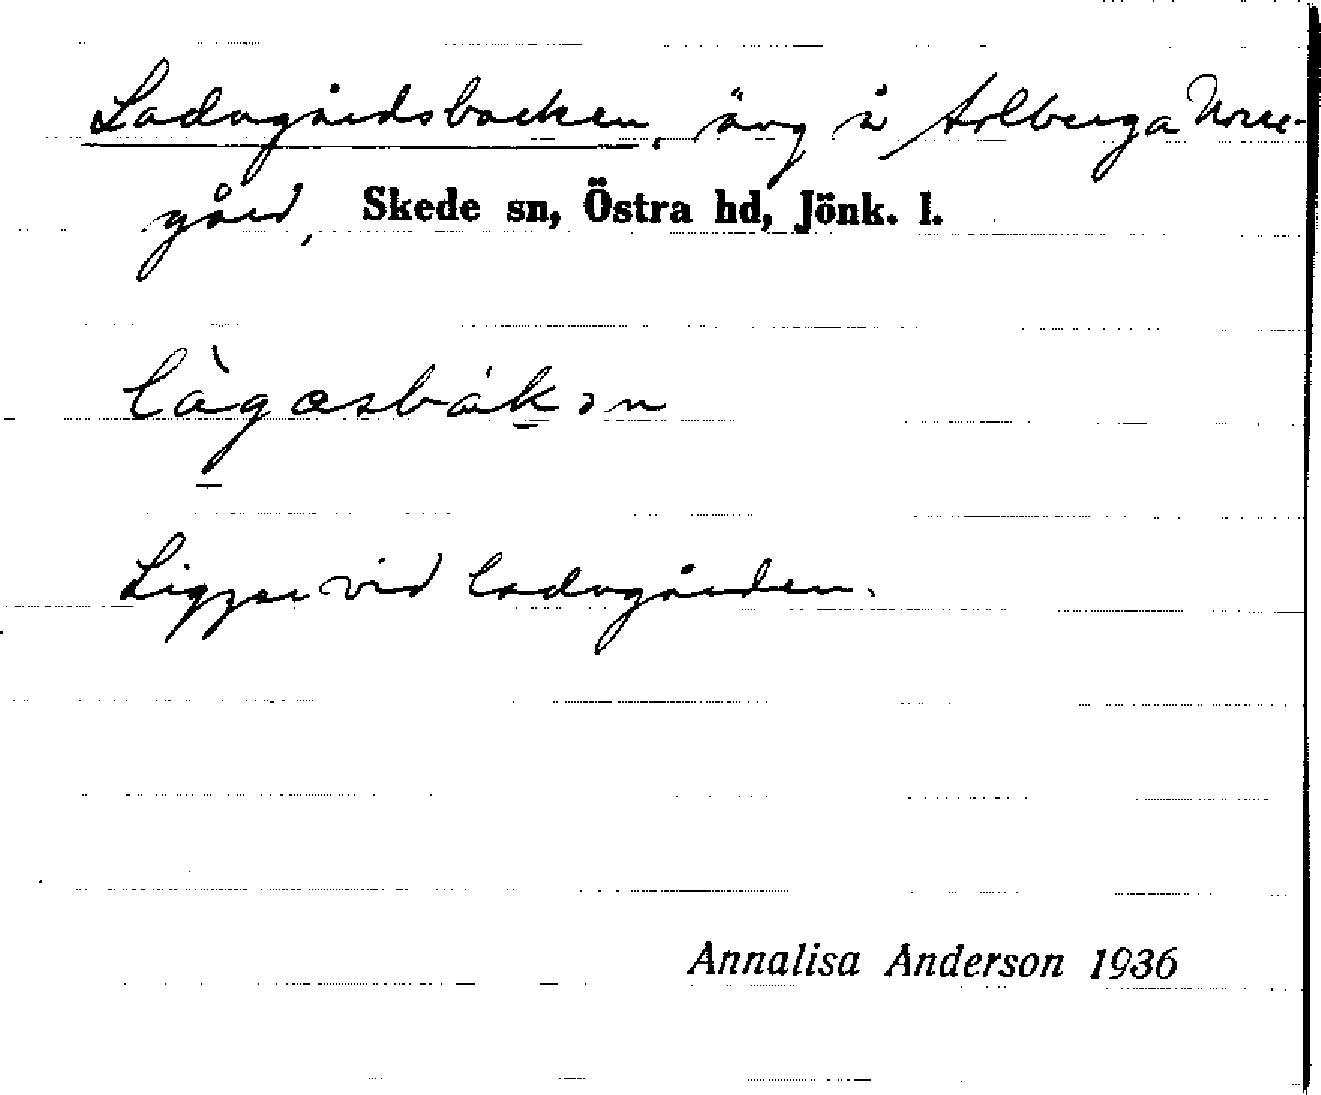 Ladugårdsbacken, äng å Solberga Norre-
gård, Skede sn, Östra hd, Jönk. l.
làgasbákən
Ligger vid ladugården.
Annalisa Anderson 1936